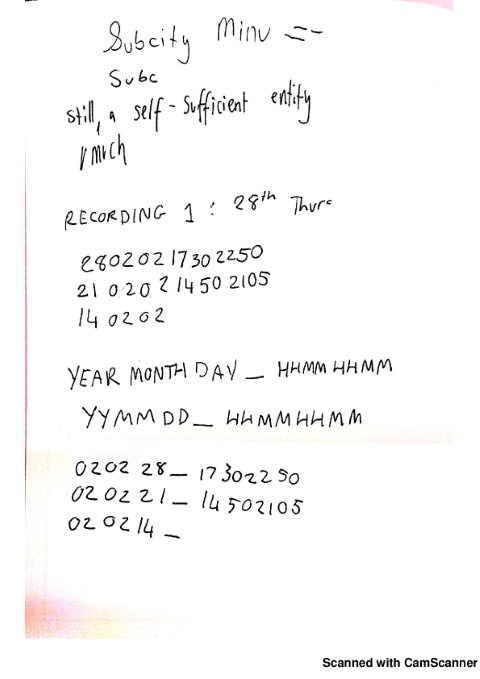 Subcity Minu =-
Subc
still, a self-sufficient entity
much
RECORDING 1 : 28th Thurs
280202 1730 2250
21 0 20 2 1450 2105
14 0202
YEAR MONTH DAY _ HHMM HHMM
YYMM DD _ HHMMHHMM
0202 28 _ 17302250
02 02 21 _ 14502105
02 02 14 _
Scanned with CamScanner